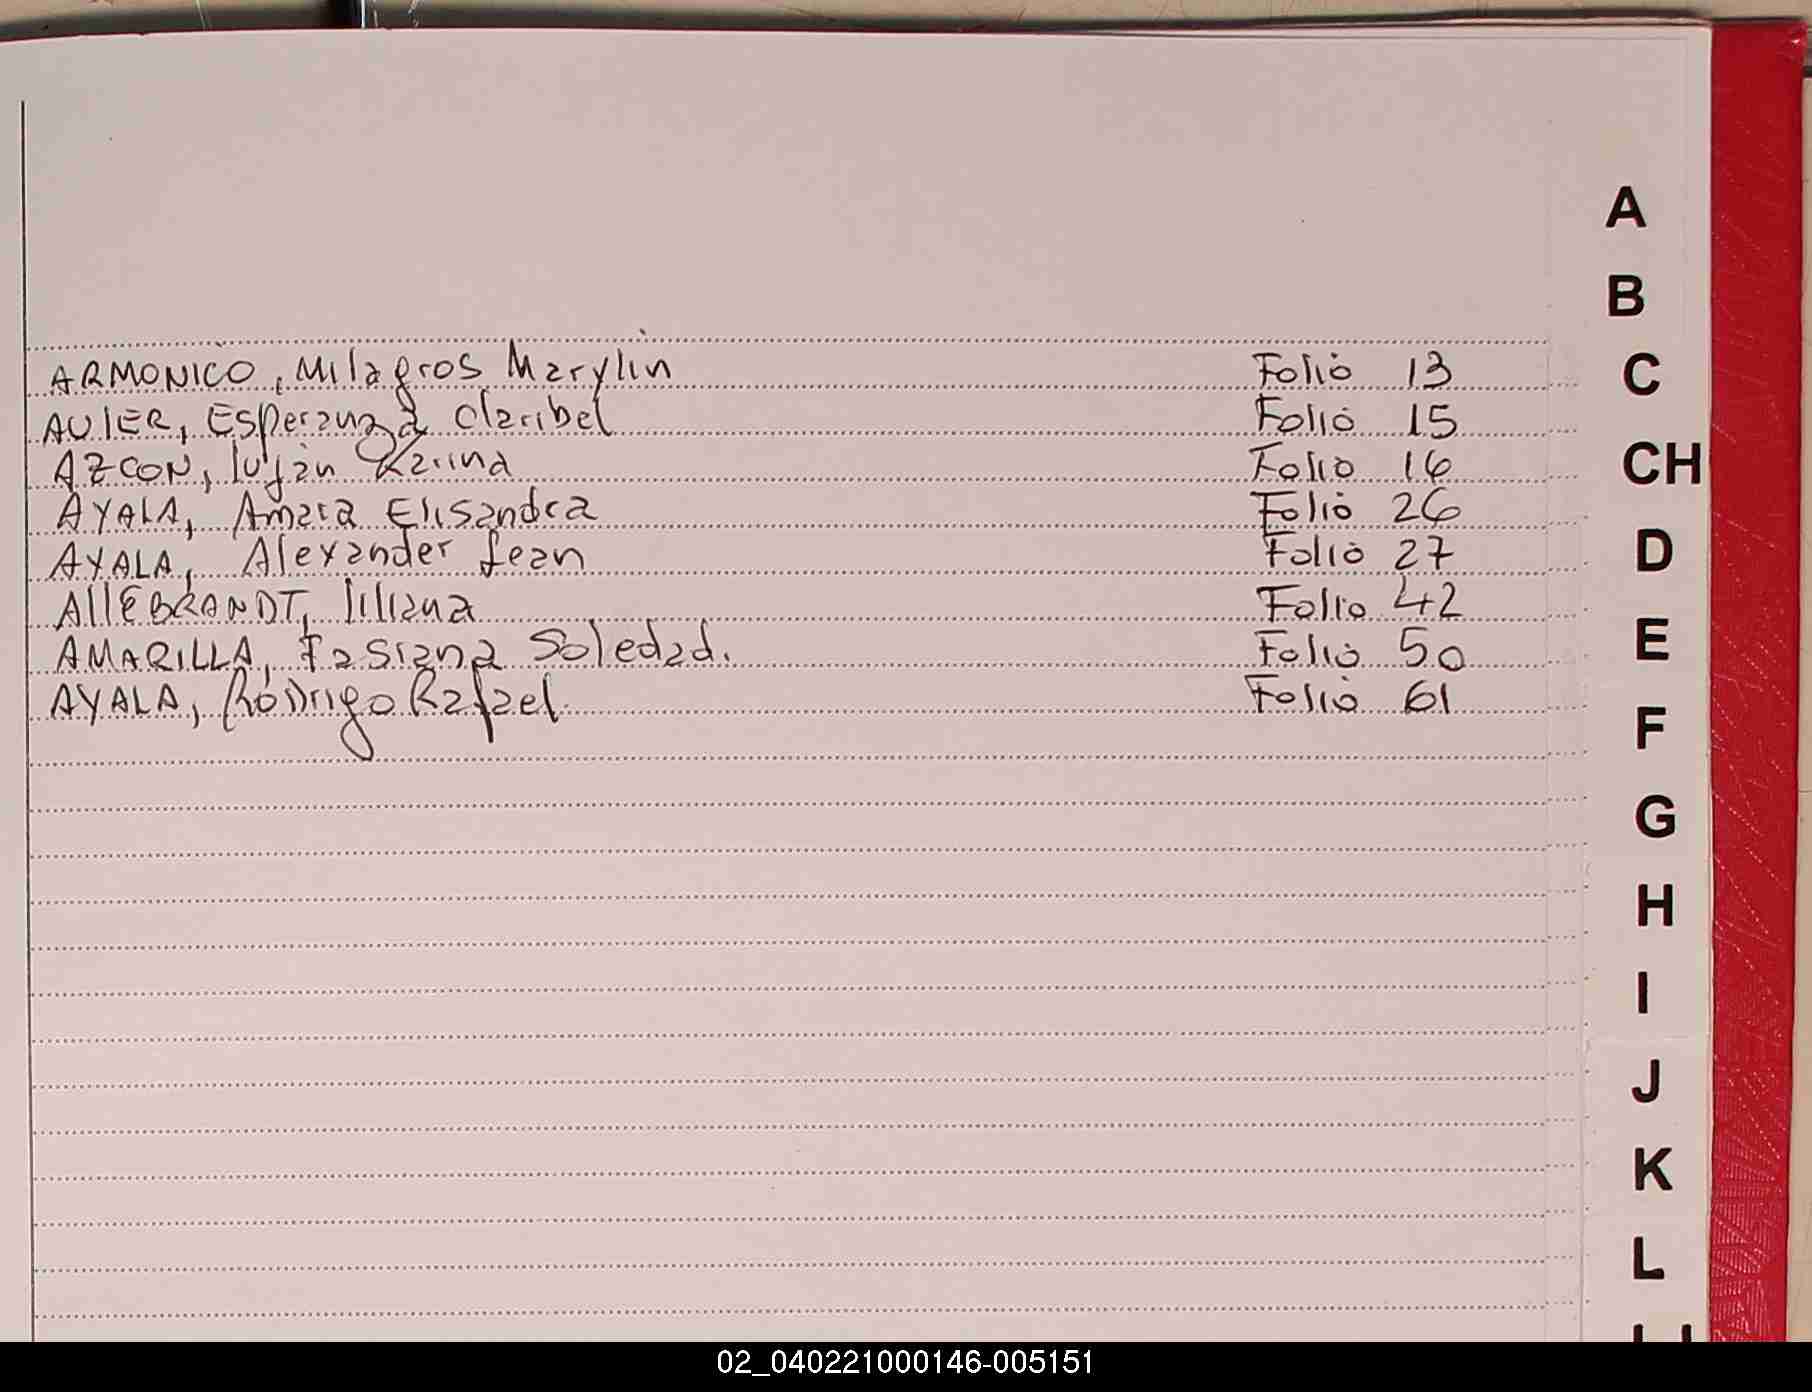 ARMONICO, Milagros Marylin Folio 13
AUIER, Esperanza Claribel Folio 15
AZCON, lujan Karina Folio 16
AYALA, Amara Elisandra Folio 26
AYALA, Alexander Jean Folio 27
AllEBRANDT, liliana Folio 42
AMARILLA, Soledad. Folio 50
AYALA, Rodrigo Rafael Folio 61
A
B
C
CH
D
E
F
G
H
I
J
K
L
02_040221000146-005151